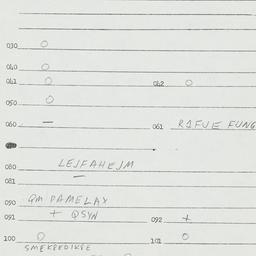 030 O
040 O
041 O 042 O
050 O
060 — 061 RIFUE FUNG
080 LEJFAHEJM
081 —
090 QM PAMELAX
091 + QSYN 092 +
100 O 101 O
SMEKPEDIKPE